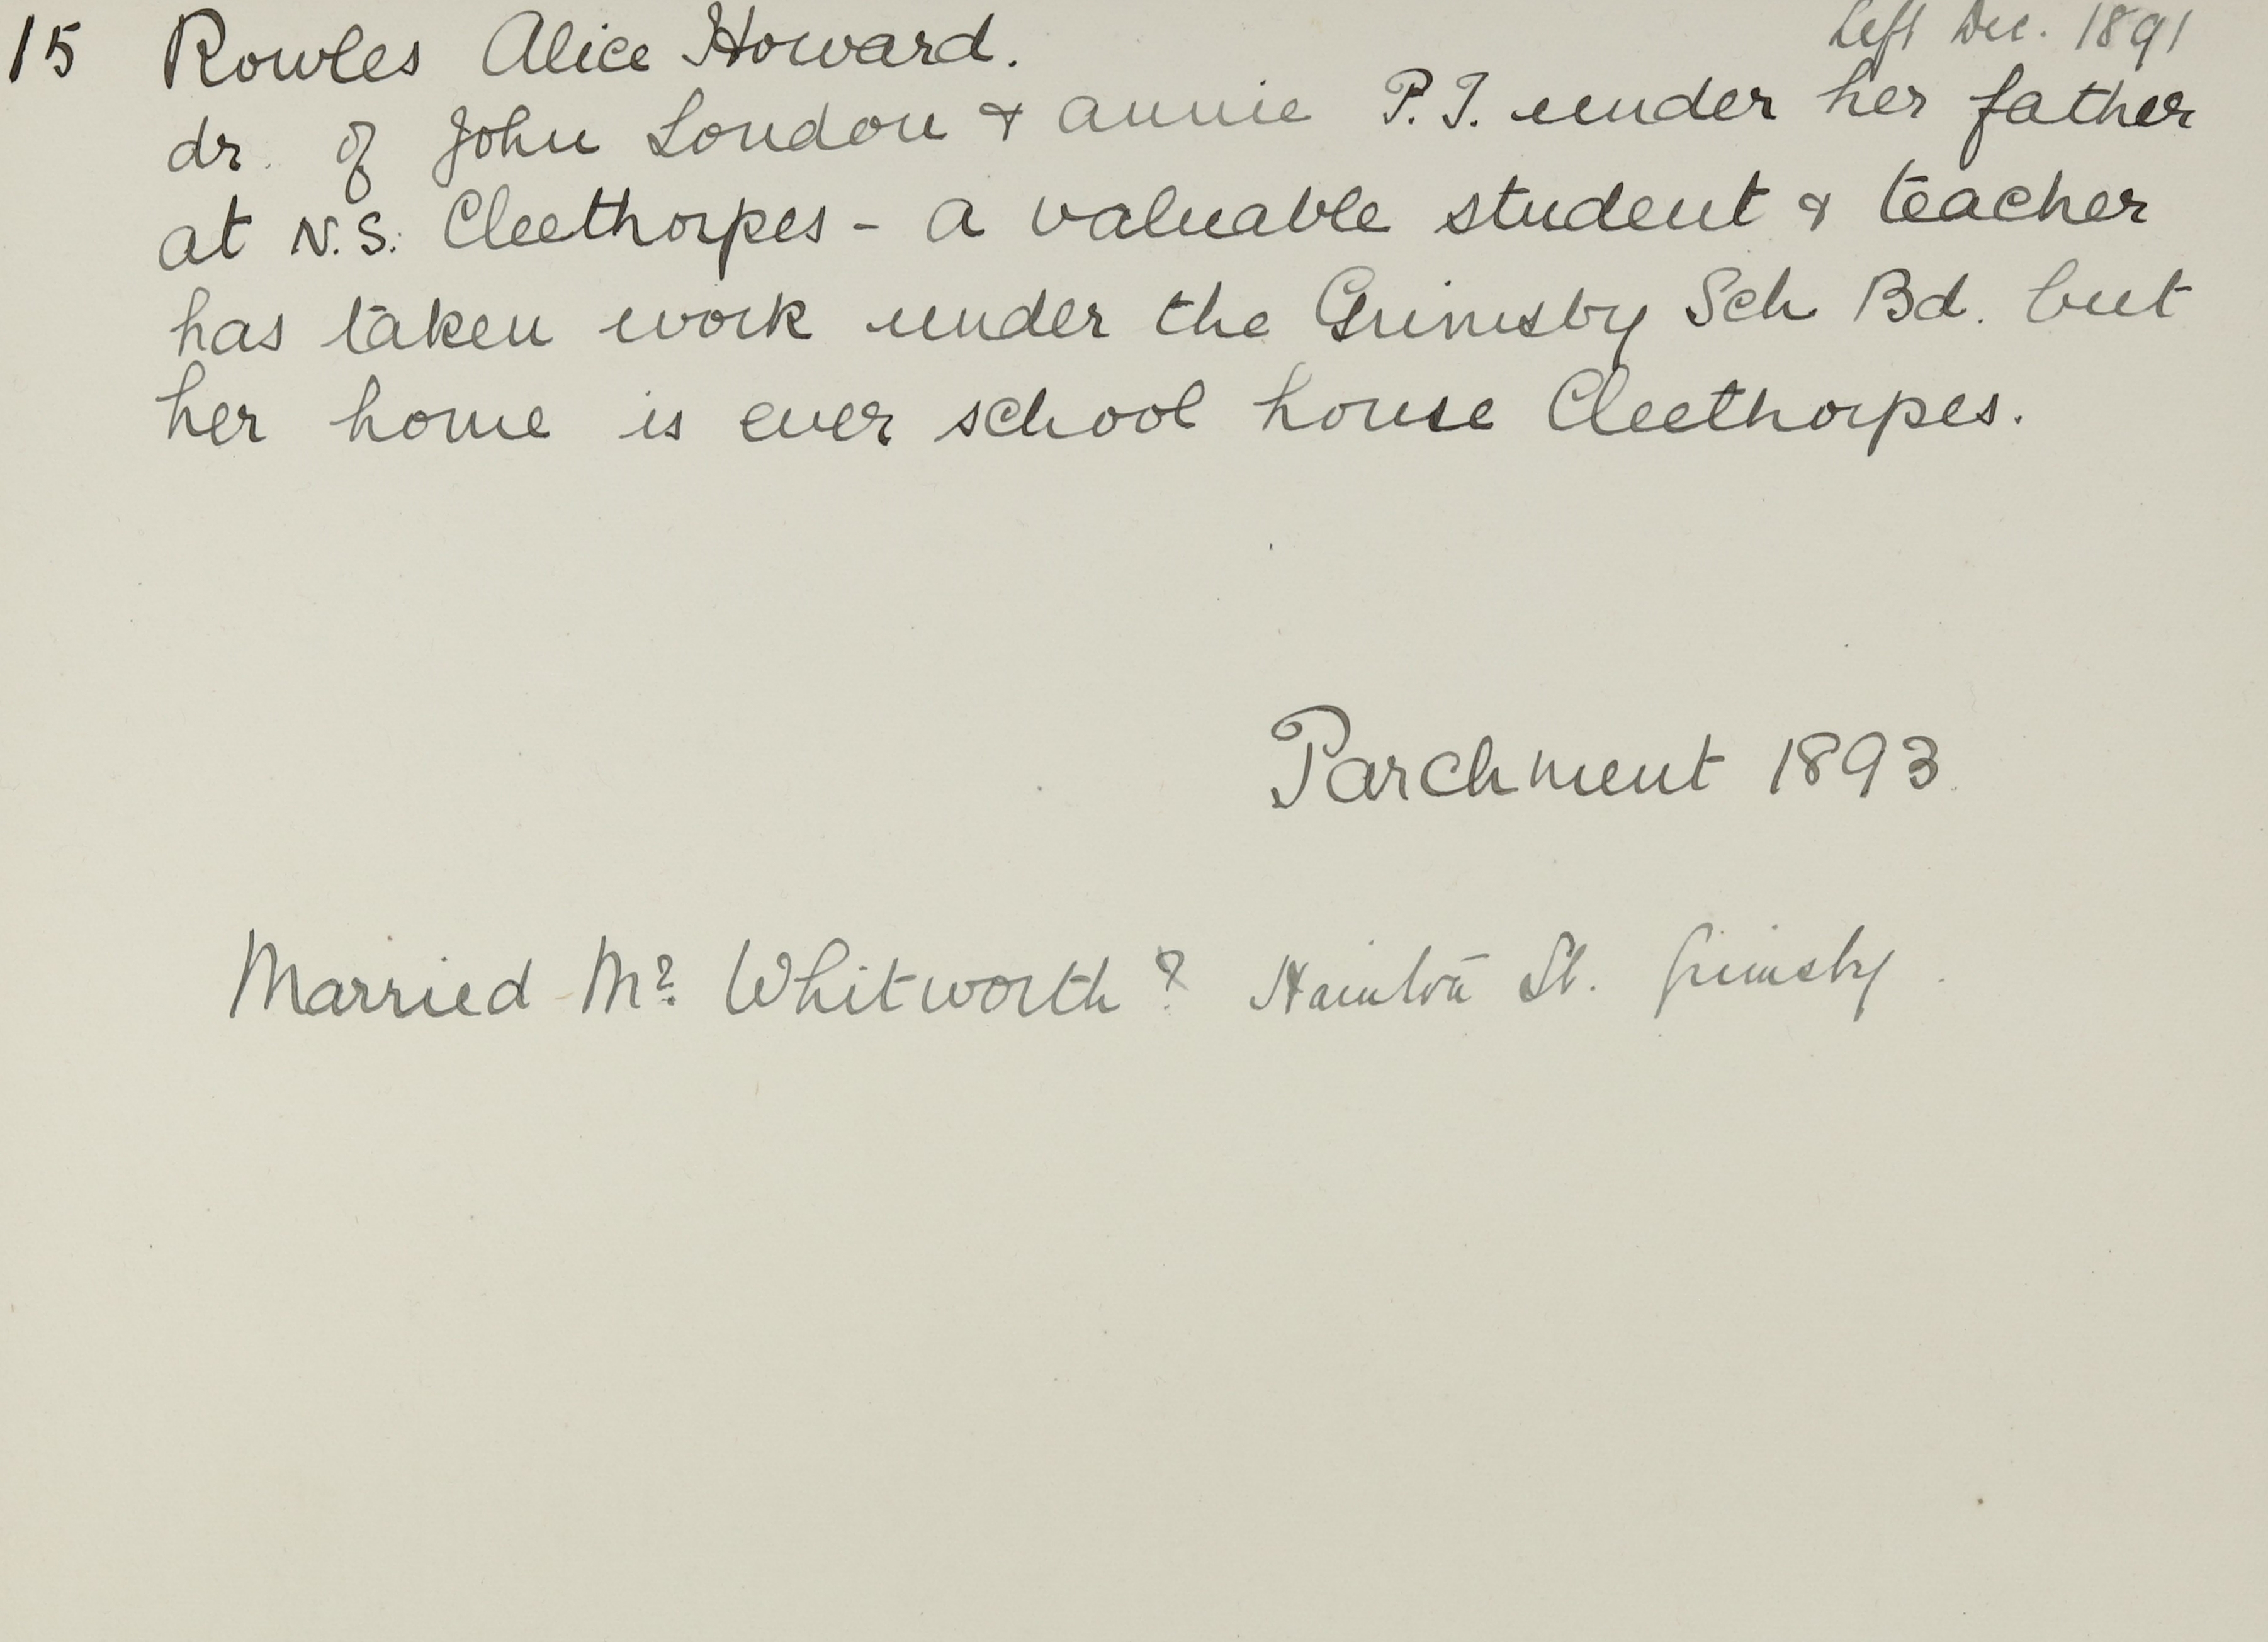 15 Rowles Alice Howard. Left Dec. 1891
dr. of John London & annie P.T. under her father
at N.S. Cleethorpes - a valuable student & teacher
has taken work under the Grimsby Sch Bd. but
her home is ever school house Cleethorpes.
Parchment 1893
Married Mr. Whitworth ? St. Grimsby